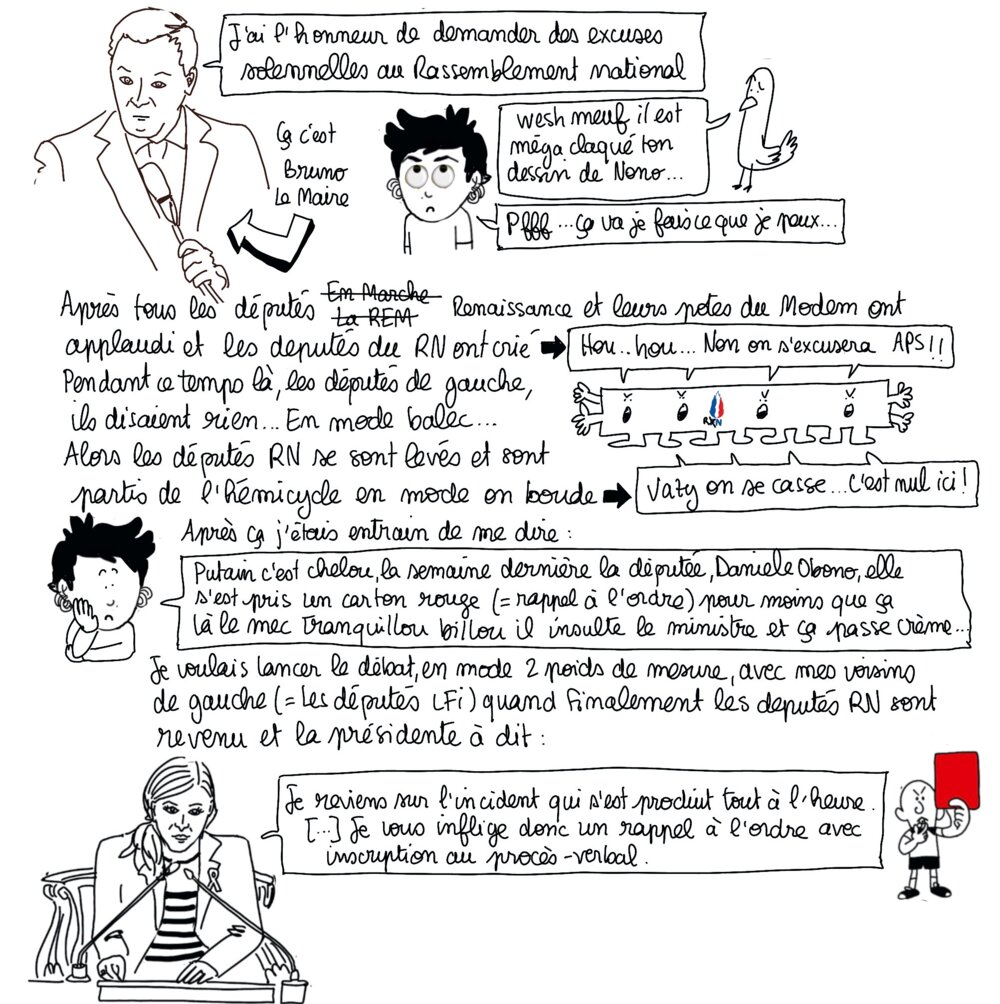 J'ai l'honneur de demander des excuses
solennelles au Rassemblement national
Ça c'est
Bruno
Le Maire
wesh meuf il est
méga claqué ton
dessin de Nono...
Pffff...ça va je fais ce que je peux...
Après tous les députés En Marche La REM Renaissance et leurs potes du Modem ont
applaudi et les deputés du RN ont crié
Hou..hou... Non on s'excusera APS!!
Pendant ce temps là, les députés de gauche,
ils disaient rien... En mode balec...
RN
Alors les députés RN se sont levés et sont
partis de l'Hémicycle en mode on boude
Vazy on se casse...C'est nul ici!
Après ça j'étais entrain de me dire :
Putain c'est chelou, la semaine dernière la députée, Daniele Obono, elle
s'est pris un carton rouge (= rappel à l'ordre) pour moins que ça
là le mec Tranquillou billou il insulte le ministre et ça passe crème...
Je voulais lancer le débat, en mode 2 poids de mesure, avec mes voisins
de gauche (= Les députés LFi) quand finalement les deputés RN sont
revenu et la présidente à dit :
Je reviens sur l'incident qui s'est produit tout à l'heure.
[...] Je vous inflige donc un rappel à l'ordre avec
inscription au procès-verbal.